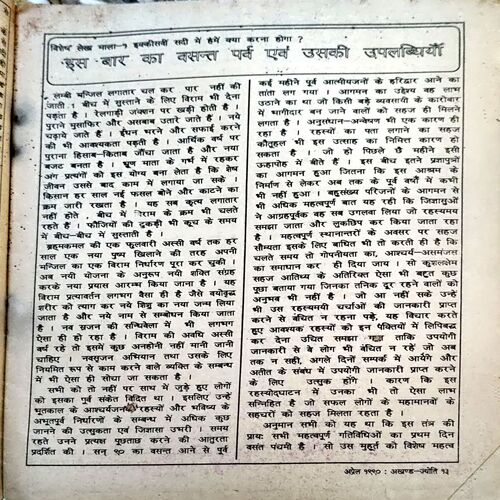 विशेष लेख माला-१ इक्कीसवीं सदी में हमें क्या करना होगा ?
इस बार का वसन्त पर्व एवं उसकी उपलब्धियाँ
लम्बी मन्जिल लगातार चल कर पार नहीं की
जाती । बीच में सुस्ताने के लिए विराम भी देना
पड़ता है । रेलगाड़ी जंक्शन पर खड़ी होती है ।
पुराने मुसाफिर और असबाब उतारे जाते हैं नये
चढ़ाये जाते हैं । ईंधन भरने और सफाई करने
की भी आवश्यकता पड़ती है । आर्थिक वर्ष पर
पुराना हिसाब-किताब जाँचा जाता है और नया
बजट बनता है । भ्रूण माता के गर्भ में रहकर
अंग प्रत्यंगों को इस योग्य बना लेता है कि शेष
जीवन उससे बाद काम में लगाया जा सके ।
किसान हर साल नई फसल बोने और काटने का
क्रम जारी रखता है । यह सब कृत्य लगातार
नहीं होते, बीच में विराम के क्रम भी चलते
रहते हैं । फौजियों की टुकड़ी भी कूच के समय
में बीच-बीच में सुस्ताती है ।
ब्रह्मकमल की एक फुलवारी अस्सी वर्ष तक हर
साल एक नया पुष्प खिलाने की तरह अपनी
मन्जिल का एक विराम निर्धारण पूरा कर चुकी ।
अब नयी योजना के अनुरूप नयी शक्ति संग्रह
करके नया प्रयास आरम्भ किया जाना है । यह
विराम प्रत्यावर्तन लगभग वैसा ही है जैसे वयोवृद्ध
शरीर को त्याग कर नये शिशु का नया जन्म लिया
जाता है और नये नाम से सम्बोधन किया जाता
है । नव सृजन की सन्धिवेला में भी लगभग
ऐसा ही हो रहा है । विराम की अवधि अस्सी
वर्ष रहे तो इसमें कुछ अनहोनी नहीं मानी जानी
चाहिए । नवसृजन अभियान तथा उसके लिए
नियमित रूप से काम करने वाले व्यक्ति के सम्बन्ध
में भी ऐसा ही सोचा जा सकता है ।
सभी को तो नहीं पर साथ में जुड़े हुए लोगों
को इसका पूर्व संकेत विदित था । इसलिए उन्हें
भूतकाल के आश्चर्यजनक रहस्यों और भविष्य के
अभूतपूर्व निर्धारणों के सम्बन्ध में अधिक कुछ
जानने की उत्सुकता एवं जिज्ञासा उभरी । समय
रहते उनने प्रत्यक्ष पूछताछ करने की आतुरता
प्रदर्शित की । सन् ९० का वसन्त आने से पूर्व
कई महीने पूर्व आत्मीयजनों के हरिद्वार आने का
तांता लग गया । आगमन का उद्देश्य वह लाभ
उठाने का था जो किसी बड़े व्यवसायी के कारोबार
में भागीदार बन जाने वालों को सहज ही मिलने
लगता है । अनुसंधान-अन्वेषण भी एक कारण ही
रहा है । रहस्यों का पता लगाने का सहज
कौतूहल भी इस उत्साह का निमित्त कारण हो
सकता है । जो हो पिछले छै महीने इसी
ऊहापोह में बीते हैं । इस बीच इतने प्रज्ञापुत्रों
का आगमन हुआ जितना कि इस आश्रम के
निर्माण से लेकर अब तक के पूर्व वर्षों में कभी
भी नहीं हुआ । बहुसंख्य परिजनों के आगमन से
भी अधिक महत्वपूर्ण बात यह रही कि जिज्ञासुओं
ने आग्रहपूर्वक वह सब उगलवा लिया जो रहस्यमय
समझा जाता और लुकछिप कर किया जाता रहा
है । महत्वपूर्ण स्थानान्तरों के अवसर पर सहज
सौम्यता इसके लिए बाधित भी तो करती ही है कि
चलते समय तो गोपनीयता का, आश्चर्य-असमंजस
का समाधान कर ही दिया जाय । सो कुशलक्षेम
सहज आतिथ्य के अतिरिक्त ऐसा भी बहुत कुछ
पूछा बताया गया जिनका तनिक दूर रहने वालों को
अनुभव भी नहीं है । जो आ नहीं सके उन्हें
भी उस रहस्यमयी चर्चाओं की जानकारी प्राप्त
करने से वंचित न रहना पड़े, यह विचार करते
हुए आवश्यक रहस्यों को इन पंक्तियों में लिपिबद्ध
कर देना उचित समझा गया ताकि उपयोगी
जानकारी से वे लोग भी वंचित न रहें जो अब
तक न सही, अगले दिनों सम्पर्क में आयेंगे और
अतीत के संबंध में उपयोगी जानकारी प्राप्त करने
के लिए उत्सुक होंगे । कारण कि इस
रहस्योद्घाटन में उनका भी तो ऐसा लाभ
सन्निहित है जो सफल लोगों के महामानवों के
सहचरों को सहज मिलता रहता है ।
अनुमान सभी को यह था कि इस तंत्र की
प्रायः सभी महत्वपूर्ण गतिविधिओं का प्रथम दिन
वसंत पंचमी है । सो उस मुहूर्त को विशेष महत्व
अप्रैल १९९० : अखण्ड-ज्योति १३